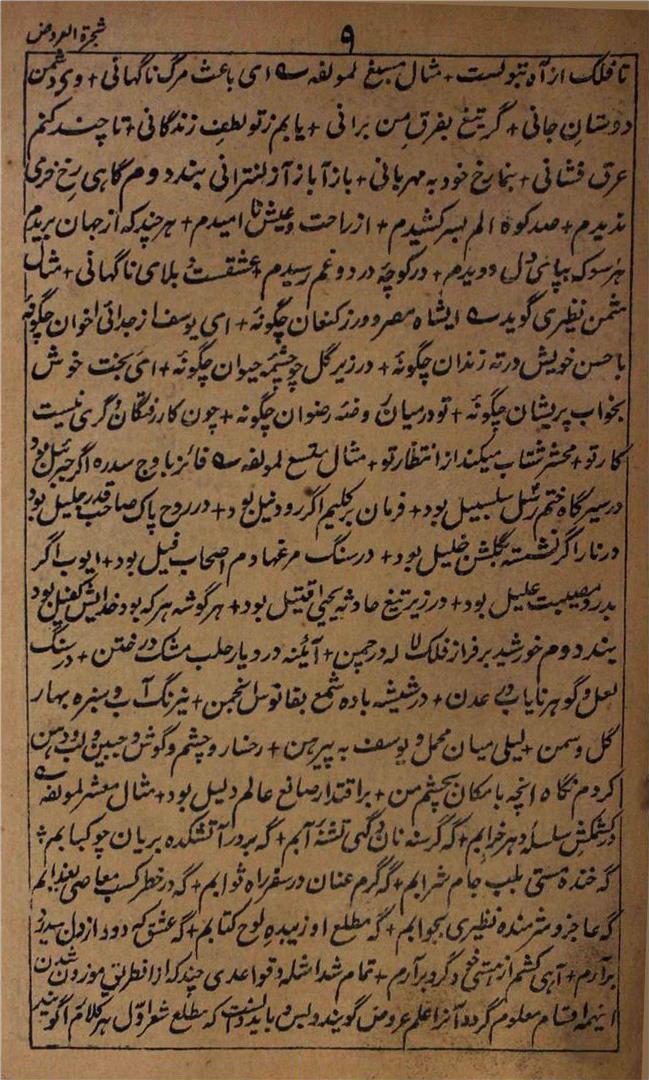 شجرة العروض
۹
تا فلک از آه تنوٗلست + مثال مسبغ لمولفه ؎ ای باعث مرگ ناگهانی + وی دشمن
دوستان جانی + گر تیغ بفرق من برانی + یابم ز تو لطف زندگانی + تا چند کنم
عرق فشانی + بنما رخ خود به مهربانی + باز آ باز آ ز لنترانی بند دوم گاهی رخ خرمی
ندیدم + صد کوه الم بسر کشیدم + از راحت و عیش نا امیدم + هر چند که از جهان بریدم
هر سو که بپای دل دویدم + در کوچهٔ درد و غم رسیدم + عشقست و بلای ناگهانی + مثال
مثمن نظیری گوید ؎ ای شاه مصر دور ز کنعان چگونهٔ + ای یوسف از جدائی اخوان چگونهٔ
با حسن خویش در ته زندان چگونهٔ + در زیر گل چو چشمهٔ حیوان چگونهٔ + ای بخت خوش
بخواب پریشان چگونهٔ + تو در میان روضهٔ رضوان چگونهٔ + چون کار رفتگان دگری نیست
کار تو + محشر شتاب میکند از انتظار تو + مثال متسع لمولفه ؎ فائز باوج سدره اگر جبرئیل بود
در سیرگاه ختم رسل سلسبیل بود + فرمان بر کلیم اگر رود نیل بود + در روح پاک صاحب قدر جلیل بود
در نار اگر نشسته بگلشن خلیل بود + در سنگ مرغها دم اصحاب فیل بود + ایوب اگر
بدرد مصیبت علیل بود + در زیر تیغ حادثه یحیی قتیل بود + هر گوشه هر که بود خدایش کفیل بود
بند دوم خورشید بر فراز فلک لاله در چمن + آئینه در دیار حلب مشک در ختن + در سنگ
لعل و گوهر نایاب در عدن + در شیشه باده شمع بفانوس انجمن + نیرنگ آب و سبزه بهار
گل و سمن + لیلی میان محمل و یوسف به پیرهن + رخسار و چشم و گوش و جبین و لب و دهن
کردم نگاه انچه بامکان بچشم من + بر اقتدار صانع عالم دلیل بود + مثال معشر لمولفه ؎
در کشمکش سلسلهٔ دهر خرابم + گه گرسنه نان و گهی تشنهٔ آبم + گه بر در آتشکده بریان چو کبابم +
گه خندهٔ مستی بلب جام شرابم + گه گرم عنان در سفر راه ثوابم + گه در خطر کسب معاصی بعذابم
گه عاجز و شرمنده نظیری بجوابم + گه مطلع او زیب ده لوح کتابم + گه عشق که دود از دل
برآرم + آهی کشم از هستی خود گرد برآرم + تمام شد امثله و قواعدی چند که از افطریق موزون شدن
اینهمه اقسام معلوم گردد آنرا علم عروض گویند و بس و باید دانست که مطلع شعر اول هر کلام را گویند